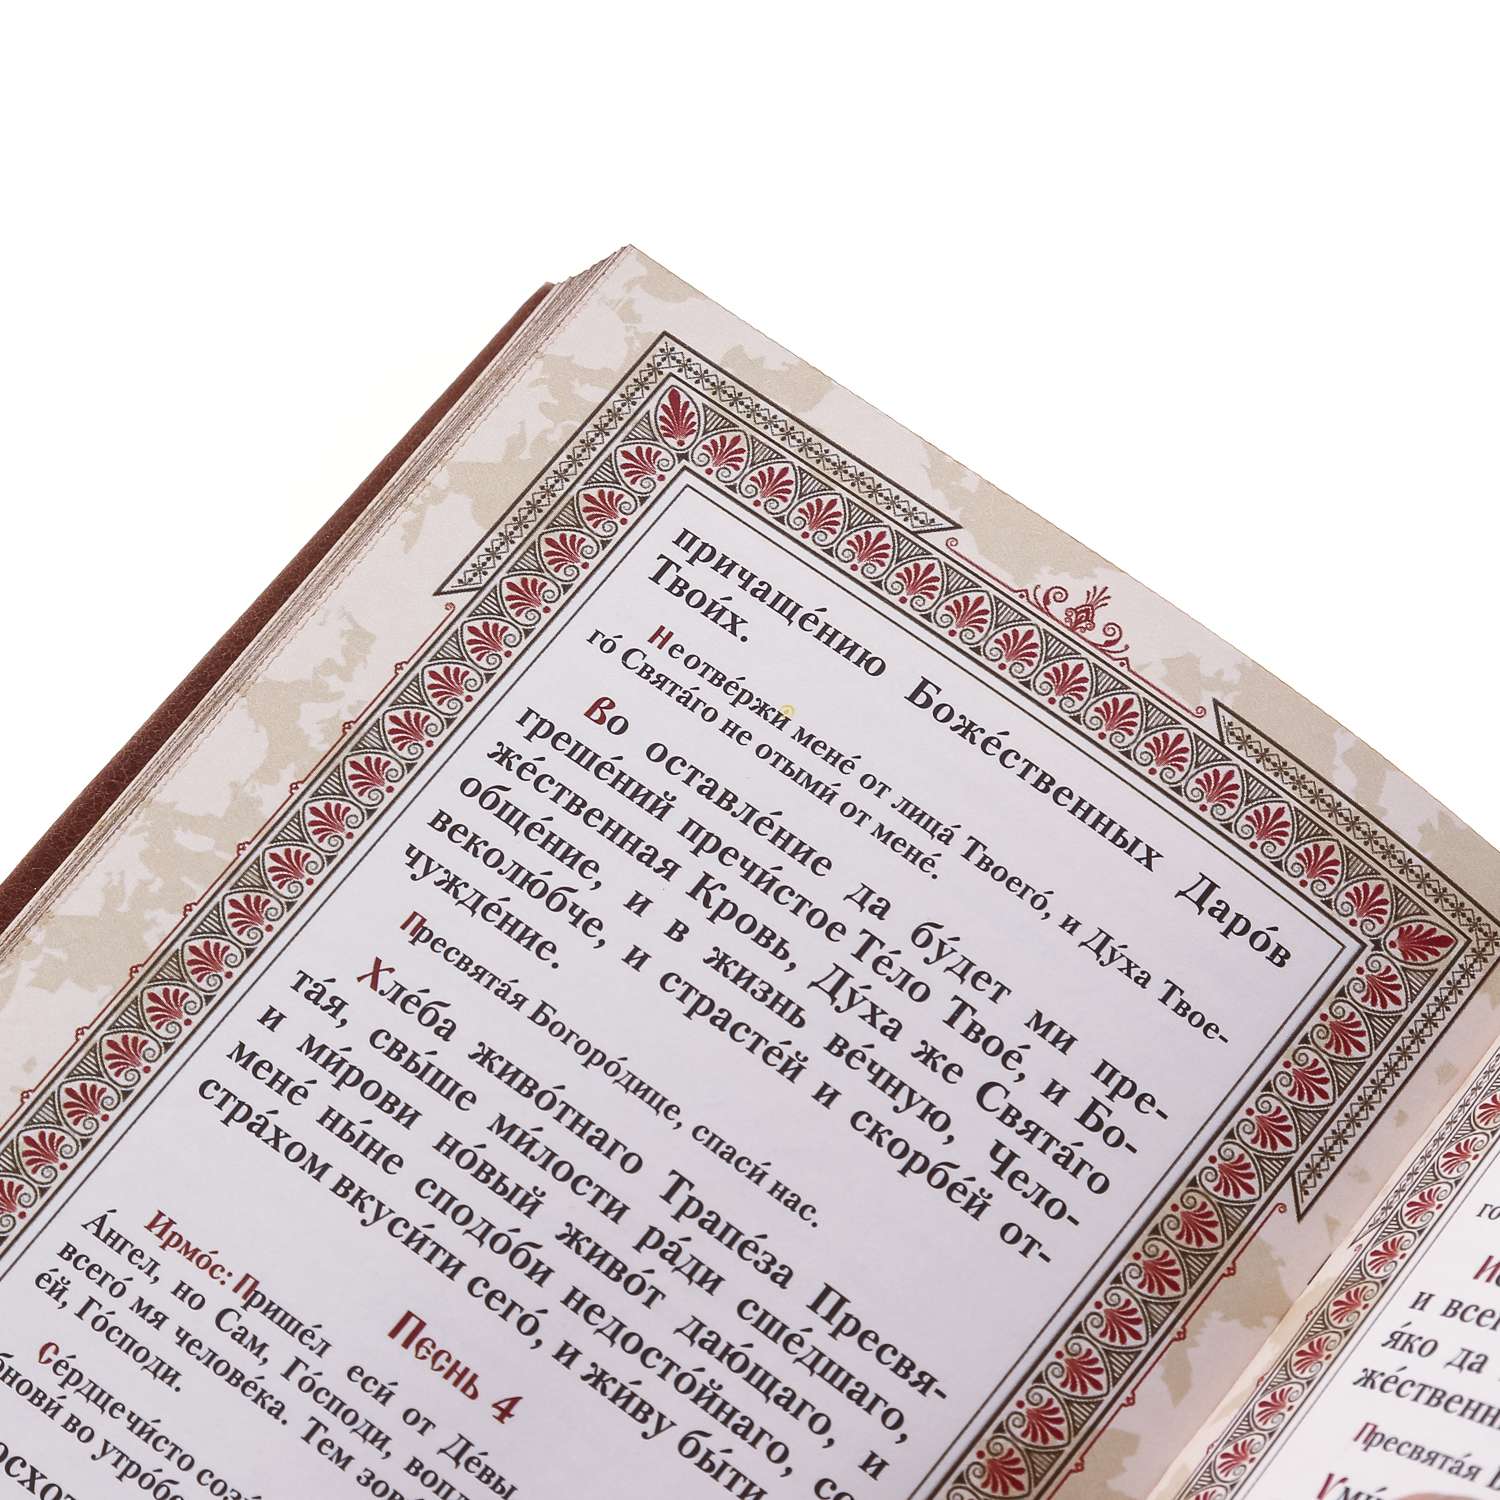 причаще́нию Боже́ственных Даро́в
Твои́х.
Не отве́ржи мене́ от лица́ Твоего́, и Ду́ха Твое-
го́ Свята́го не отыми́ от мене́.
Во оставле́ние да бу́дет ми пре-
греше́ний пречи́стое Те́ло Твое́, и Бо-
же́ственная Кровь, Ду́ха же Свята́го
обще́ние, и в жизнь ве́чную, Чело-
веколю́бче, и страсте́й и скорбе́й от-
чужде́ние.
Пресвята́я Богоро́дице, спаси́ нас.
Хле́ба живо́тнаго Трапе́за Пресвя-
та́я, свы́ше ми́лости ра́ди сше́дшаго,
и ми́рови но́вый живо́т даю́щаго, и
мене́ ны́не сподо́би недосто́йнаго, со
стра́хом вкуси́ти сего́, и жи́ву бы́ти
Песнь 4
Ирмо́с: Прише́л еси́ от Де́вы
А́нгел, но Сам, Го́споди,
всего́ мя челове́ка. Тем
е́й, Го́споди.
Се́рдце чи́сто
во утро́бе
и
я́ко да
же́ственн
Пресвята́я